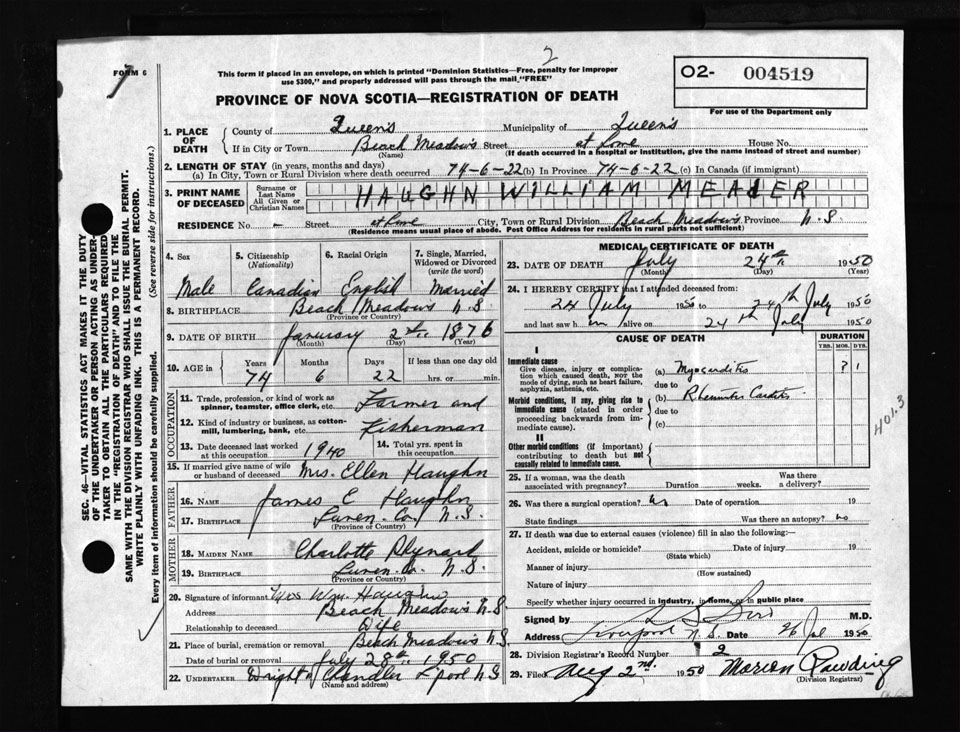 2
7
FORM 6
This form if placed in an envelope, on which is printed "Dominion Statistics—Free, penalty for improper
use $300," and properly addressed will pass through the mail, "FREE"
O2- 004519
For use of the Department only
PROVINCE OF NOVA SCOTIA—REGISTRATION OF DEATH
1. PLACE OF DEATH
County of Queen's Municipality of Queen's
If in City or Town Beach Meadows Street at home House No.
(Name) (If death occurred in a hospital or institution, give the name instead of street and number)
2. LENGTH OF STAY (in years, months and days)
(a) In City, Town or Rural Division where death occurred 74-6-22 (b) In Province 74-6-22 (c) In Canada (if immigrant)
3. PRINT NAME OF DECEASED
Surname or Last Name
All Given or Christian Names
HAUGHN WILLIAM MEADER
RESIDENCE No. - Street at home City, Town or Rural Division Beach Meadows Province N.S.
(Residence means usual place of abode. Post Office Address for residents in rural parts not sufficient)
4. Sex
Male
5. Citizenship (Nationality)
Canadian
6. Racial Origin
English
7. Single, Married, Widowed or Divorced (write the word)
Married
8. BIRTHPLACE Beach Meadows N.S
(Province or Country)
9. DATE OF BIRTH January 2nd. 1876
(Month) (Day) (Year)
10. AGE in
Years 74
Months 6
Days 22
If less than one day old
hrs. or min.
OCCUPATION
11. Trade, profession, or kind of work as spinner, teamster, office clerk, etc. Farmer and
12. Kind of industry or business, as cotton-mill, lumbering, bank, etc. Fisherman
13. Date deceased last worked at this occupation 1940
14. Total yrs. spent in this occupation
15. If married give name of wife or husband of deceased Mrs. Ellen Haughn
FATHER
16. NAME James E Haughn
17. BIRTHPLACE Lunen. Co. N.S.
(Province or Country)
MOTHER
18. MAIDEN NAME Charlotte Rhynard
19. BIRTHPLACE Lunen. Co. N.S.
(Province or Country)
20. Signature of informant Mrs Wm. Haughn
Address Beach Meadows N.S
Relationship to deceased Wife
21. Place of burial, cremation or removal Beach Meadows N.S
Date of burial or removal July 28th. 1950
22. UNDERTAKER Wright & Chandler L'pool N.S
(Name and address)
MEDICAL CERTIFICATE OF DEATH
23. DATE OF DEATH July 24th 1950
(Month) (Day) (Year)
24. I HEREBY CERTIFY that I attended deceased from:
24 July 1950 to 24th July 1950
and last saw him alive on 24th July 1950
CAUSE OF DEATH
DURATION
YRS. MOS. DYS.
I
Immediate cause
Give disease, injury or complication which caused death, NOT the mode of dying, such as heart failure, asphyxia, asthenia, etc.
(a) Myocarditis ? 1
due to
Morbid conditions, if any, giving rise to immediate cause (stated in order proceeding backwards from immediate cause).
(b) Rheumatic Carditis
due to
(c)
II
Other morbid conditions (if important) contributing to death but not causally related to immediate cause.
401.3
25. If a woman, was the death associated with pregnancy? Duration weeks. Was there a delivery?
26. Was there a surgical operation no Date of operation 19
State findings Was there an autopsy? no
27. If death was due to external causes (violence) fill in also the following:—
Accident, suicide or homicide? Date of injury 19
(State which)
Manner of injury
(How sustained)
Nature of injury
Specify whether injury occurred in industry, in home, or in public place
Signed by M.D.
Address Liverpool N.S. Date 26 Jul 1950
28. Division Registrar's Record Number 2
29. Filed Aug 2nd. 1950 Marion
(Division Registrar)
SEC. 46—VITAL STATISTICS ACT MAKES IT THE DUTY
OF THE UNDERTAKER OR PERSON ACTING AS UNDER-
TAKER TO OBTAIN ALL THE PARTICULARS REQUIRED
IN THE "REGISTRATION OF DEATH" AND TO FILE THE
SAME WITH THE DIVISION REGISTRAR WHO SHALL ISSUE THE BURIAL PERMIT.
WRITE PLAINLY WITH UNFADING INK. THIS IS A PERMANENT RECORD.
Every item of information should be carefully supplied. (See reverse side for instructions.)